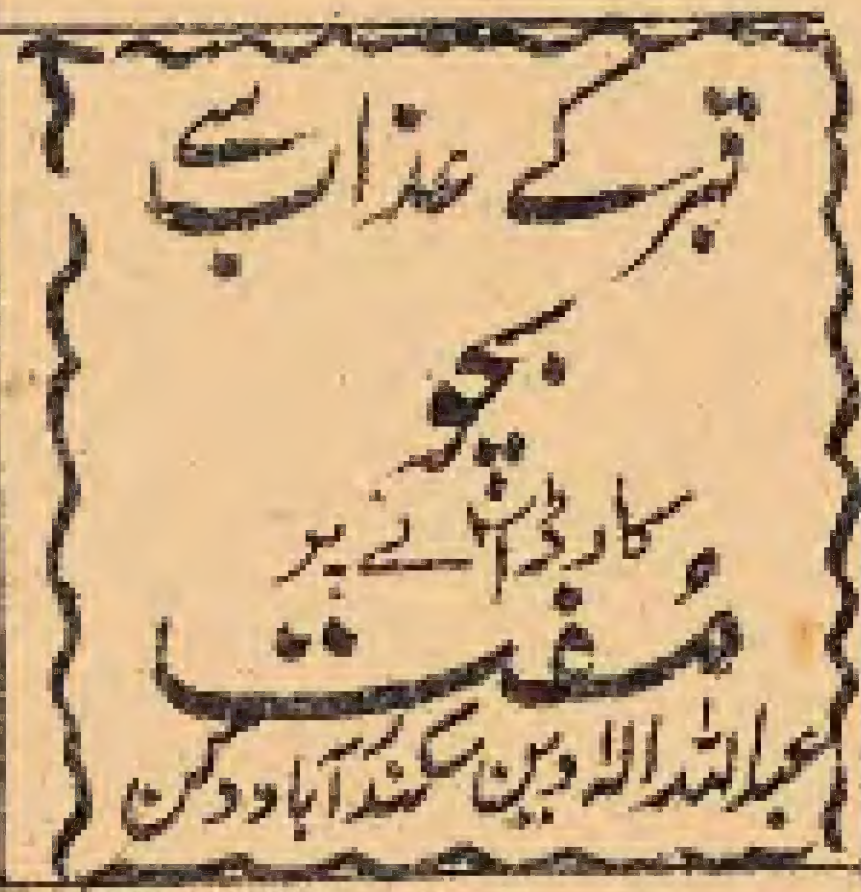 قبر کے عذاب سے
بچو
کارڈ آنے پر
مُفت
عبداللہ الہ دین سکندرآباد دکن